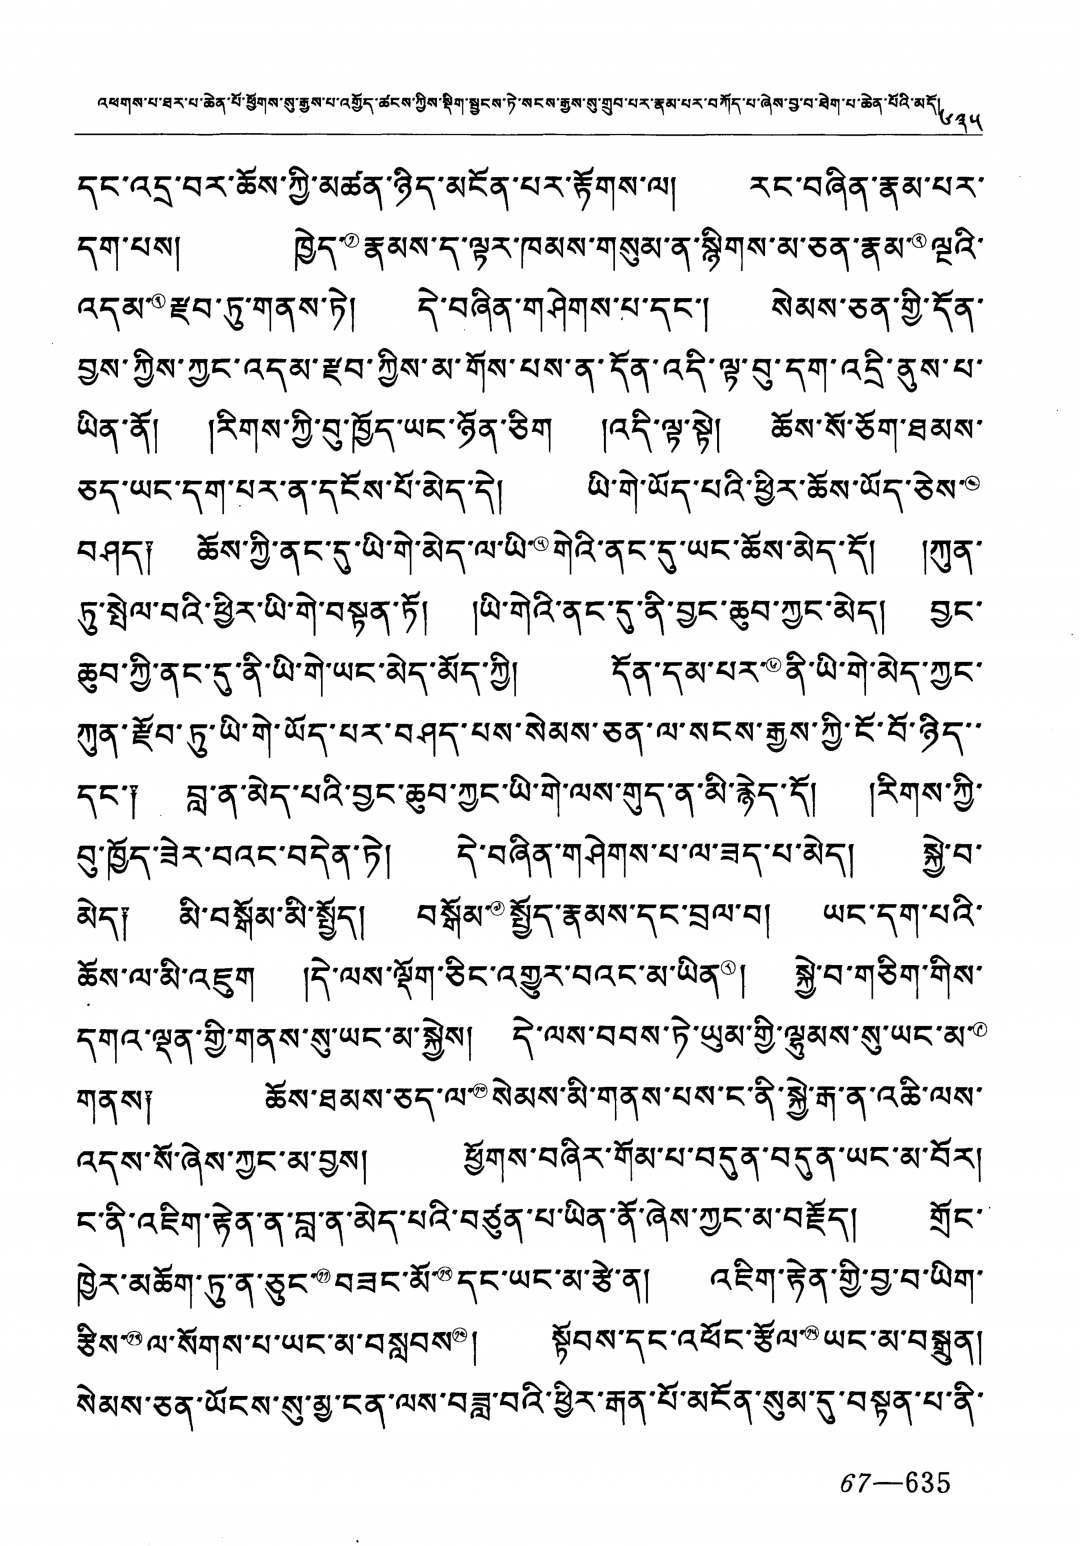 འཕགས་པ་ཐར་པ་ཆེན་པོ་ཕྱོགས་སུ་རྒྱས་པ་འགྱོད་ཚངས་ཀྱིས་སྡིག་སྦྱངས་ཏེ་སངས་རྒྱས་སུ་གྲུབ་པར་རྣམ་པར་བཀོད་པ་ཞེས་བྱ་བ་ཐེག་པ་ཆེན་པོའི་མདོ། ༦༣༥
དང་འདྲ་བར་ཆོས་ཀྱི་མཚན་ཉིད་མངོན་པར་རྟོགས་ལ། རང་བཞིན་རྣམ་པར་
དག་པས། ཁྱེད་①རྣམས་ད་ལྟར་ཁམས་གསུམ་ན་སྙིགས་མ་ཅན་རྣམ་②ལྔའི་
འདམ་③རྫབ་ཏུ་གནས་ཏེ། དེ་བཞིན་གཤེགས་པ་དང་། སེམས་ཅན་གྱི་དོན་
བྱས་ཀྱིས་ཀྱང་འདམ་རྫབ་ཀྱིས་མ་གོས་པས་ན་དོན་འདི་ལྟ་བུ་དག་འདྲི་ནུས་པ་
ཡིན་ནོ། །རིགས་ཀྱི་བུ་ཁྱོད་ཡང་ཉོན་ཅིག །འདི་ལྟ་སྟེ། ཆོས་སོ་ཅོག་ཐམས་
ཅད་ཡང་དག་པར་ན་དངོས་པོ་མེད་དེ། ཡི་གེ་ཡོད་པའི་ཕྱིར་ཆོས་ཡོད་ཅེས་④
བཤད༑ ཆོས་ཀྱི་ནང་དུ་ཡི་གེ་མེད་ལ་ཡི་⑤གེའི་ནང་དུ་ཡང་ཆོས་མེད་དོ། །ཀུན་
ཏུ་སྤེལ་བའི་ཕྱིར་ཡི་གེ་བསྟན་ཏོ། །ཡི་གེའི་ནང་དུ་ནི་བྱང་ཆུབ་ཀྱང་མེད། བྱང་
ཆུབ་ཀྱི་ནང་དུ་ནི་ཡི་གེ་ཡང་མེད་མོད་ཀྱི། དོན་དམ་པར་⑥ནི་ཡི་གེ་མེད་ཀྱང་
ཀུན་རྫོབ་ཏུ་ཡི་གེ་ཡོད་པར་བཤད་པས་སེམས་ཅན་ལ་སངས་རྒྱས་ཀྱི་ངོ་བོ་ཉིད་་
དང་༑ བླ་ན་མེད་པའི་བྱང་ཆུབ་ཀྱང་ཡི་གེ་ལས་གུད་ན་མི་རྙེད་དོ། །རིགས་ཀྱི་
བུ་ཁྱོད་ཟེར་བའང་བདེན་ཏེ། དེ་བཞིན་གཤེགས་པ་ལ་ཟད་པ་མེད། སྐྱེ་བ་
མེད༑ མི་བསྒོམ་མི་སྤྱོད། བསྒོམ་⑦སྤྱོད་རྣམས་དང་བྲལ་བ། ཡང་དག་པའི་
ཆོས་ལ་མི་འཇུག །དེ་ལས་ལྡོག་ཅིང་འགྱུར་བའང་མ་ཡིན⑧། སྐྱེ་བ་གཅིག་གིས་
དགའ་ལྡན་གྱི་གནས་སུ་ཡང་མ་སྐྱེས། དེ་ལས་བབས་ཏེ་ཡུམ་གྱི་ལྷུམས་སུ་ཡང་མ་⑨
གནས༑ ཆོས་ཐམས་ཅད་ལ་⑩སེམས་མི་གནས་པས་ང་ནི་སྐྱེ་རྒ་ན་འཆི་ལས་
འདས་སོ་ཞེས་ཀྱང་མ་བྱས། ཕྱོགས་བཞིར་གོམ་པ་བདུན་བདུན་ཡང་མ་བོར།
ང་ནི་འཇིག་རྟེན་ན་བླ་ན་མེད་པའི་བཙུན་པ་ཡིན་ནོ་ཞེས་ཀྱང་མ་བརྗོད། གྲོང་
ཁྱེར་མཆོག་ཏུ་ན་ཅུང་⑪བཟང་མོ་⑫དང་ཡང་མ་རྩེ་ན། འཇིག་རྟེན་གྱི་བྱ་བ་ཡིག་
རྩིས་⑬ལ་སོགས་པ་ཡང་མ་བསླབས⑭། སྟོབས་དང་འཕོང་རྩོལ་⑮ཡང་མ་བསྒྲུན།
སེམས་ཅན་ཡོངས་སུ་མྱ་ངན་ལས་བཟླ་བའི་ཕྱིར་རྒན་པོ་མངོན་སུམ་དུ་བསྟན་པ་ནི་
67—635